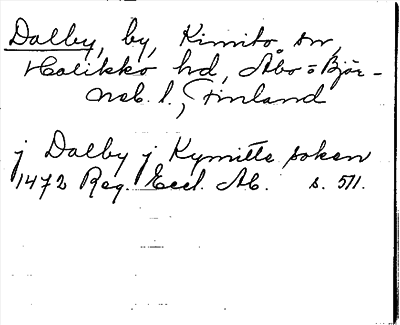 Dalby, by, Kimito sn,
Halikko hd, Åbo o Björ-
neb. l., Finland
j Dalby j Kymitte soken
1472 Reg. Eccl. Ab. s. 511.